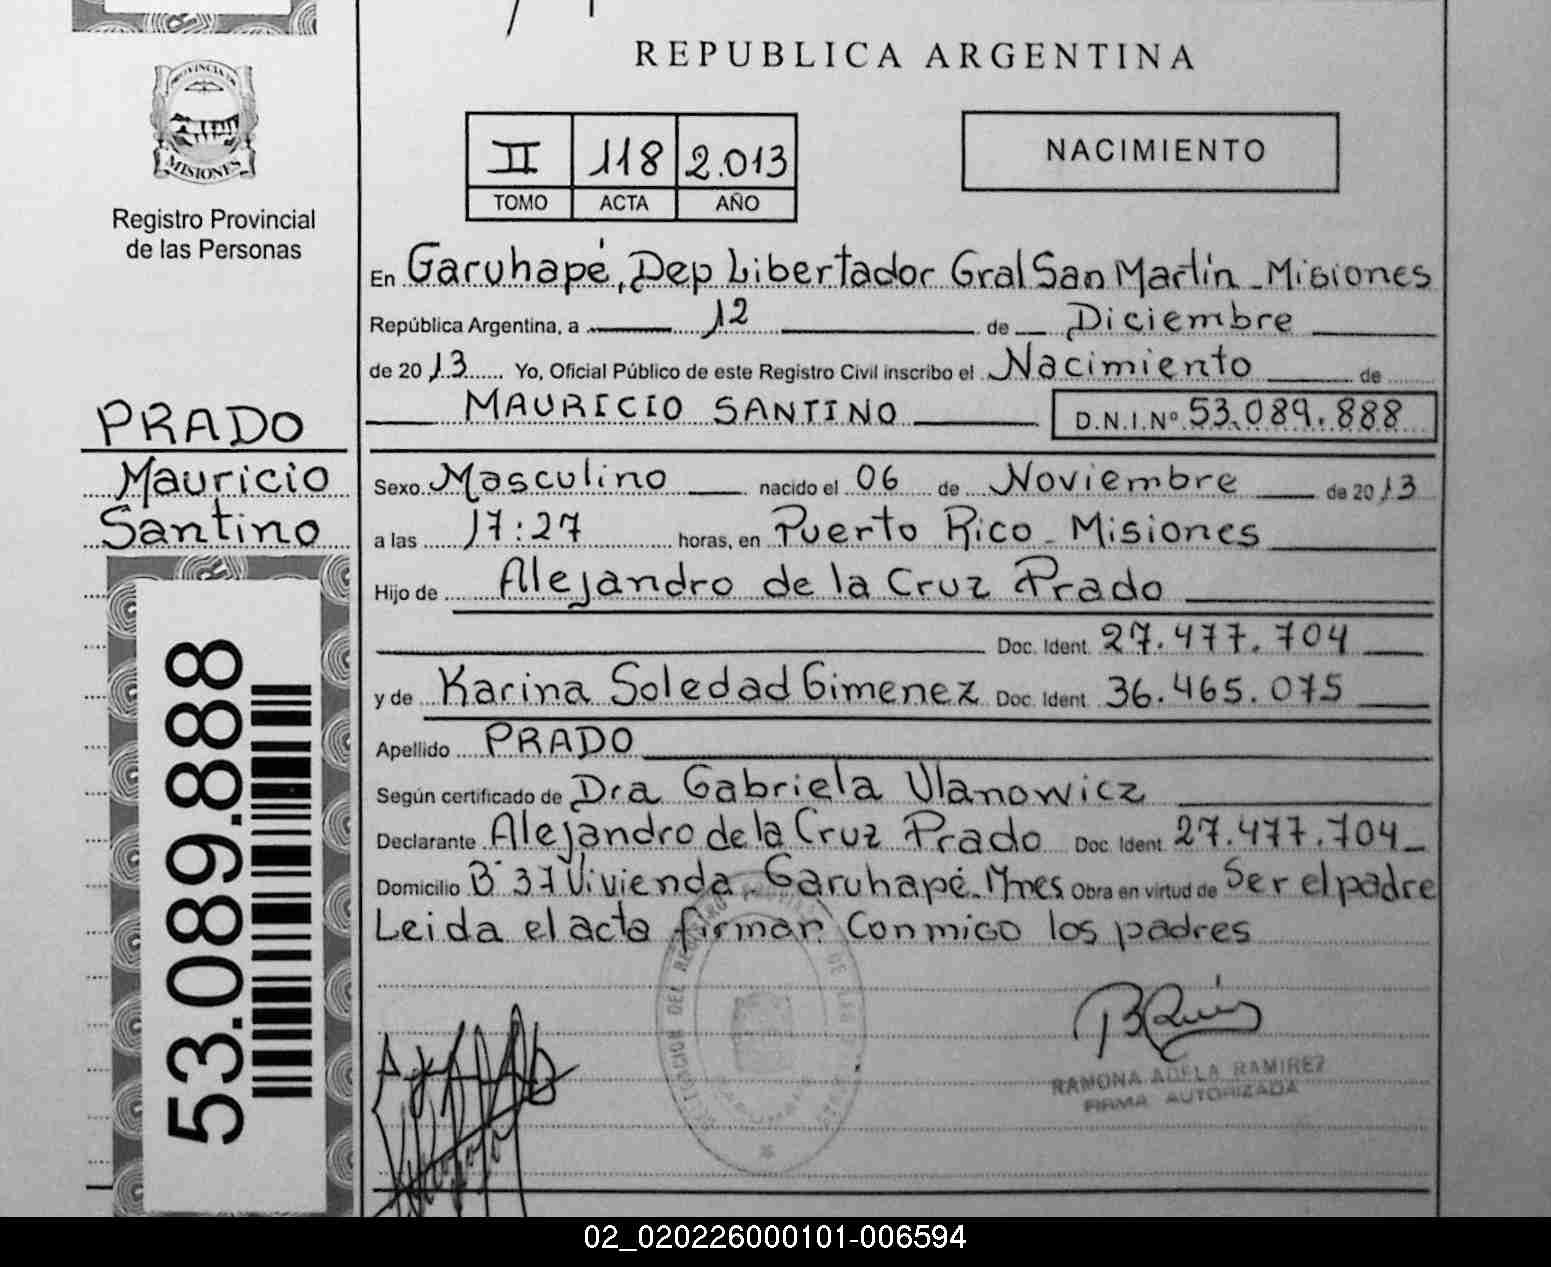 REPUBLICA ARGENTINA
PROVINCIA DE
MISIONES
Registro Provincial
de las Personas
II 118 2.013
TOMO ACTA AÑO
NACIMIENTO
En Garuhapé, Dep Libertador Gral San Martín - Misiones
República Argentina, a 12 de Diciembre
de 2013 Yo, Oficial Público de este Registro Civil inscribo el Nacimiento de
MAURICIO SANTINO D.N.I.Nº 53.089.888
PRADO
Mauricio
Santino
Sexo Masculino nacido el 06 de Noviembre de 2013
a las 17:27 horas, en Puerto Rico - Misiones
Hijo de Alejandro de la Cruz Prado
Doc. Ident. 27.477.704
y de Karina Soledad Gimenez Doc. Ident. 36.465.075
Apellido PRADO
Según certificado de Dra Gabriela Ulanowicz
Declarante Alejandro de la Cruz Prado Doc. Ident. 27.477.704
Domicilio B° 37 Vivienda - Garuhapé - Mnes Obra en virtud de Ser el padre
Leida el acta firman Conmigo los padres
53.089.888
RAMONA ADELA RAMIREZ
FIRMA AUTORIZADA
02_020226000101-006594